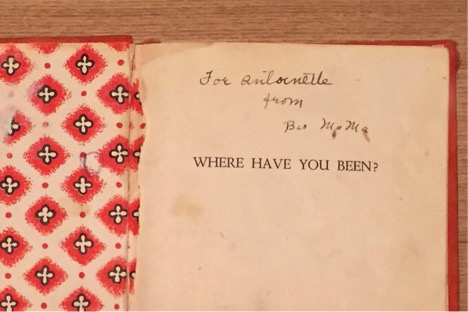 For antoinette
from
Big Ma Ma
WHERE HAVE YOU BEEN?